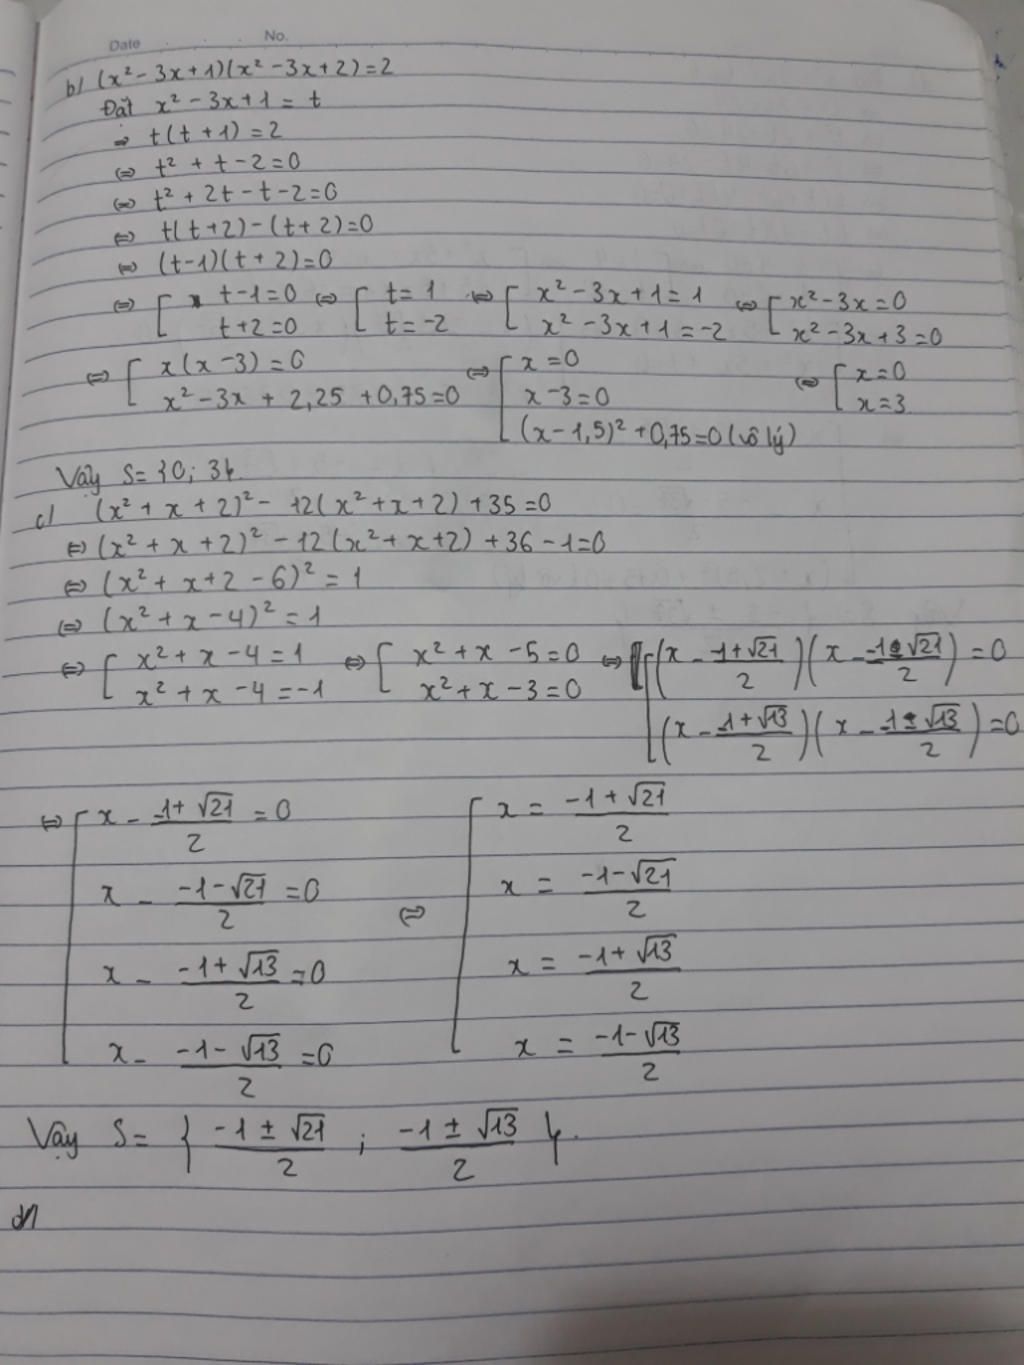 Date No.
b/ (x² - 3x + 1)(x² - 3x + 2) = 2
Đặt x² - 3x + 1 = t
⇒ t(t + 1) = 2
⇔ t² + t - 2 = 0
⇔ t² + 2t - t - 2 = 0
⇔ t(t + 2) - (t + 2) = 0
⇔ (t - 1)(t + 2) = 0
⇔ [ t - 1 = 0 ⇔ [ t = 1 ⇔ [ x² - 3x + 1 = 1 ⇔ [ x² - 3x = 0
t + 2 = 0 t = -2 x² - 3x + 1 = -2 x² - 3x + 3 = 0
⇔ [ x(x - 3) = 0 ⇔ [ x = 0 ⇔ [ x = 0
x² - 3x + 2,25 + 0,75 = 0 x - 3 = 0 x = 3
(x - 1,5)² + 0,75 = 0 (vô lý)
Vậy S = {0; 3}.
c/ (x² + x + 2)² - 12(x² + x + 2) + 35 = 0
⇔ (x² + x + 2)² - 12(x² + x + 2) + 36 - 1 = 0
⇔ (x² + x + 2 - 6)² = 1
⇔ (x² + x - 4)² = 1
⇔ [ x² + x - 4 = 1 ⇔ [ x² + x - 5 = 0 ⇔ [ (x - (-1 + √21)/2)(x - (-1 - √21)/2) = 0
x² + x - 4 = -1 x² + x - 3 = 0 (x - (-1 + √13)/2)(x - (-1 - √13)/2) = 0
⇔ [ x - (-1 + √21)/2 = 0 [ x = (-1 + √21)/2
x - (-1 - √21)/2 = 0 ⇔ x = (-1 - √21)/2
x - (-1 + √13)/2 = 0 x = (-1 + √13)/2
x - (-1 - √13)/2 = 0 x = (-1 - √13)/2
Vậy S = { (-1 ± √21)/2 ; (-1 ± √13)/2 }.
d/